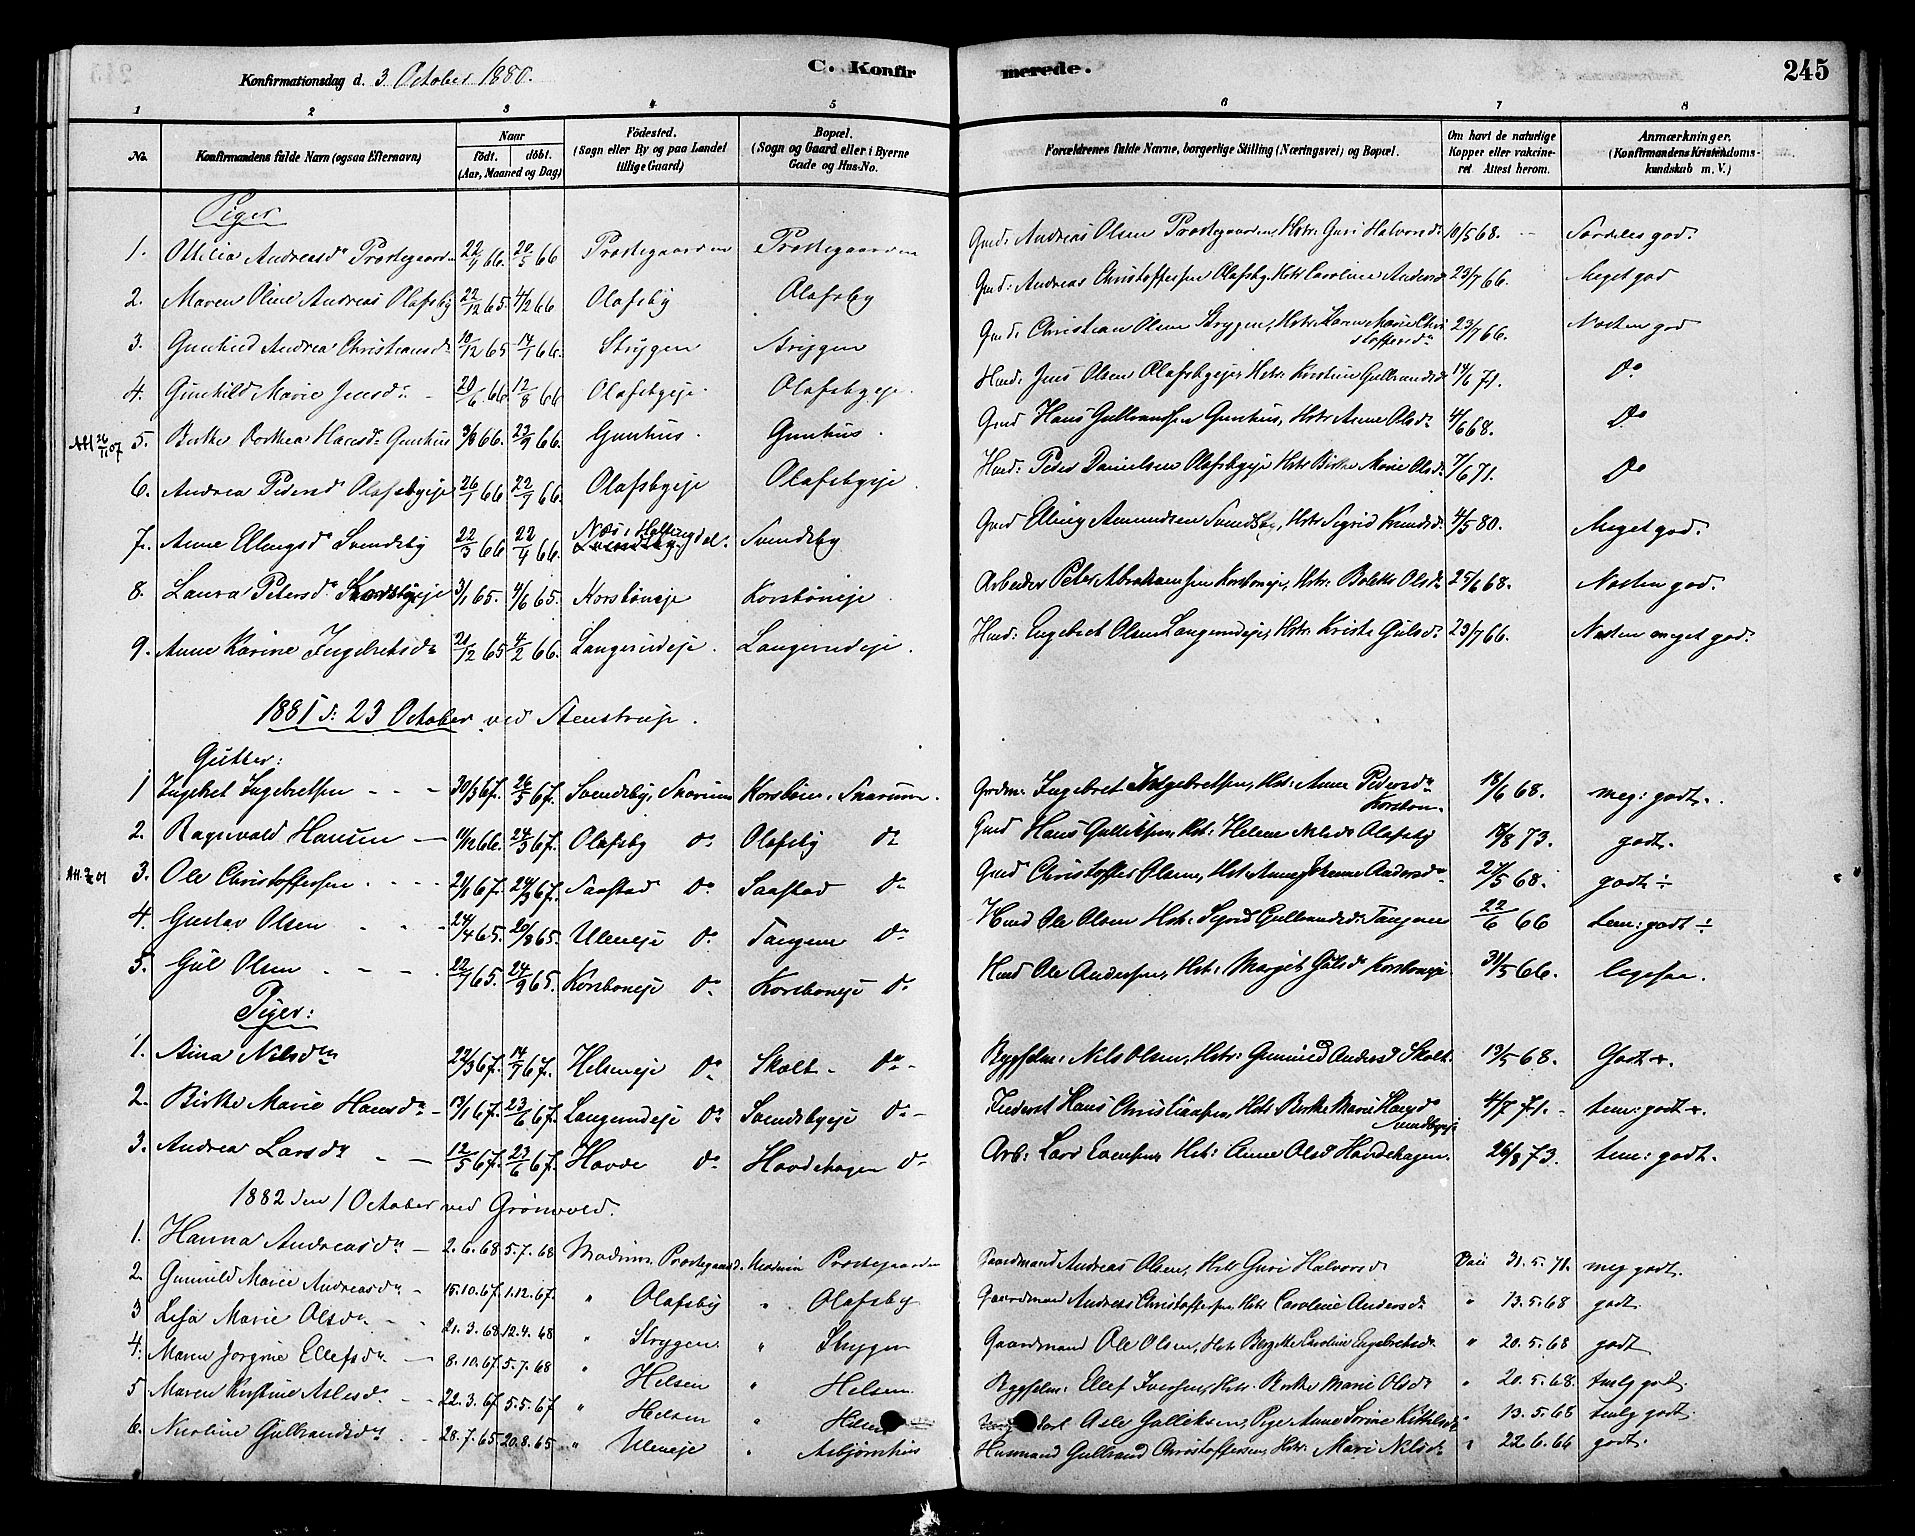 Konfirmationsdag d. 3 October 1880.
C. Konfirmerede.
245
1 2 3 4 5 6 7 8
No.
Konfirmandens fulde Navn (ogsaa Efternavn)
Naar
født. døbt.
(Aar, Maaned og Dag)
Födested.
(Sogn eller By og paa Landet
tillige Gaard)
Bopæl.
(Sogn og Gaard eller i Byerne
Gade og Hus-No.
Forældrenes fulde Navne, borgerlige Stilling (Næringsvei) og Bopæl.
Om havt de naturlige
Kopper eller vakcine-
ret Attest herom.
Anmærkninger.
(Konfirmandens Kristendoms-
kundskab m. V.)
Piger
1. Andreasd. Præstegaarden 20/5 66 Præstegaarden Præstegaarden Gmd: Andreas Olsen Præstegaarden, Hstr: Guri Halvorsd. 10/5 68. Særdeles god.
2. Maren Oline Andreas Olafsby 22/12 65. 4/2 66 Olafsby Olafsby Gmd: Andreas Christoffersen Olafsby, Hstr Caroline Andersd 23/7 66. Meget god
3. Gunhild Andrea Christiansdr 10/12 65 14/1 66. Strygen Strygen Gmd: Christian Olsen Strygen, Hstr: Karen Marie Chri
stoffersdr 23/7 66. Næsten god
4. Gunhild Marie Jensdr 20/6 66 12/8 66 Olafsbyeje. Olafsbyeje. Hmd: Jens Olsen Olafsbyeje, Hstr. Kirstine Gulbrandsd 14/6 71. Do
5. Birthe Dorthea Hansdr Gunhus 3/8 66. 22/9 66. Gunhus. Gunhus. Gmd Hans Gulbrandsen Gunhus, Hstr Anne Olsdr 4/6 68. Do
6. Andrea Pedersd Olafsbyeje 26/7 66 22/9 66. Olafsbyeje Olafsbyeje. Hmd: Peder Danielsen Olafsbyeje Hstr Birthe Marie Olsdr 7/6 71. Do
7. Anne Ellingsdr Svendsby 22/3 66 22/4 66. Næs i Hallingdal. Svendsby Gmd Elling Amundsen Svendsby, Hstr Sigrid Knudsdr 4/5 80. Meget god.
8. Laura Petersdr 3/1 65. 4/6 65. Korsbøneje Korsbøneje. Arbeider Peter Abrahamsen Korsbøneje, Hstr: Bolette Olsdr 25/6 68. Næsten god.
9. Anne Karine Ingebretsdr 21/12 65 4/2 66. Langerudeje. Langerudeje. Hmd: Engebret Olsen Langerudeje, Hstr. Kristi Gulsdr 23/7 66. Næsten meget god.
1881 d: 23 October ved Stenstrup.
Gutter:
1 Ingebret Ingebretsen - - - 30/3 67. 26/5 67. Svendsby, Snarum Korsbøen. Snarum. Gmd: Ingebret Ingebretsen, Hst: Anne Pedersdr
Korsbøen. 18/6 68. meg: godt.
2. Ragnvald Hansen 11/12 66. 24/3 67. Olafsby do Olafsby do Gmd Hans Gulliksen, Hst: Helene Nilsdr Olafsby 18/8 73. godt.
3. Ole Christoffersen 2/1 67. 24/3 67. Saastad do Saastad do Gmd Christoffer Olsen, Hst Anne Andersdr 27/5 68. godt ÷
4. Gustav Olsen 24/4 65. 20/8 65. Uleneje do Tangen do Hmd Ole Olsen Hst: Sigrid Gulbrandsdr Tangen 22/6 66 tem: godt ÷
5. Gul Olsen 22/7 65. 24/9 65. Korsboneje do Korsboneje do Hmd Ole Andersen, Hst: Margit Gulsd Korsboneje 31/5 66. ligesaa.
Piger:
1. Aina Nilsdtr 22/3 67. 14/7 67. Helseneje do Skalt do Bygselm: Nils Olsen, Hstr: Gunhild Andersd Skalt. 19/5 68. Godt
2. Birthe Marie Hansdr 13/1 67. 23/6 67. Langerudeje do Svendsbyeje do Inderst Hans Christiansen, Hstr Birthe Marie Hansdr
Svendsbyeje 4/7 71. tem: godt
3. Andrea Larsdr 12/5 67. 23/6 67. Hovde do Hovdehagen do Arb: Lars Evensen, Hst: Anne Olsd Hovdehagen. 26/8 73. tem: godt.
1882 den 1 October ved Grønvold.
1. Hanna Andreasdr 2.6.68 5.7.68 Modum. Præstegaard. Modum Præstegaarden Gaardmand Andreas Olsen, Hstr Guri Halvorsd Vac: 31.5.71. meg godt.
2. Gunhild Marie Andreasdr 15.10.67 1.12.67. " Olafsby " Olafsby Gaardmand Andreas Christoffersen, Hstr Caroline Andersdr " 13.5.68 godt.
3 Lisa Marie Olsdr 21.3.68 12.4.68 " Strygen " Strygen Gaardmand Ole Olsen, Hstr Bergitte Caroline Engebretsdr " 20.5.68 godt
4. Maren Jorgine Ellefsdr 8.10.67 5.7.68 " Helsen " Helsen Bygselm: Ellef Iversen, Hstr. Birthe Marie Olsdr " 20.5.68. temlg godt.
5 Maren Kirstine Aslesdr 22.3.67 5.5.67 " Helsen " Helsen Asle Gulliksen, Pige Anne Sørine Kittilsdr " 13.5.68 temlg godt.
6. Nicoline Gulbrandsdr 28.7.65 20.8.65 " Uleneje " Asbjørnhus Husmand Gulbrand Christoffersen, Hstr. Mari Nilsdr " 22.6.66 godt.